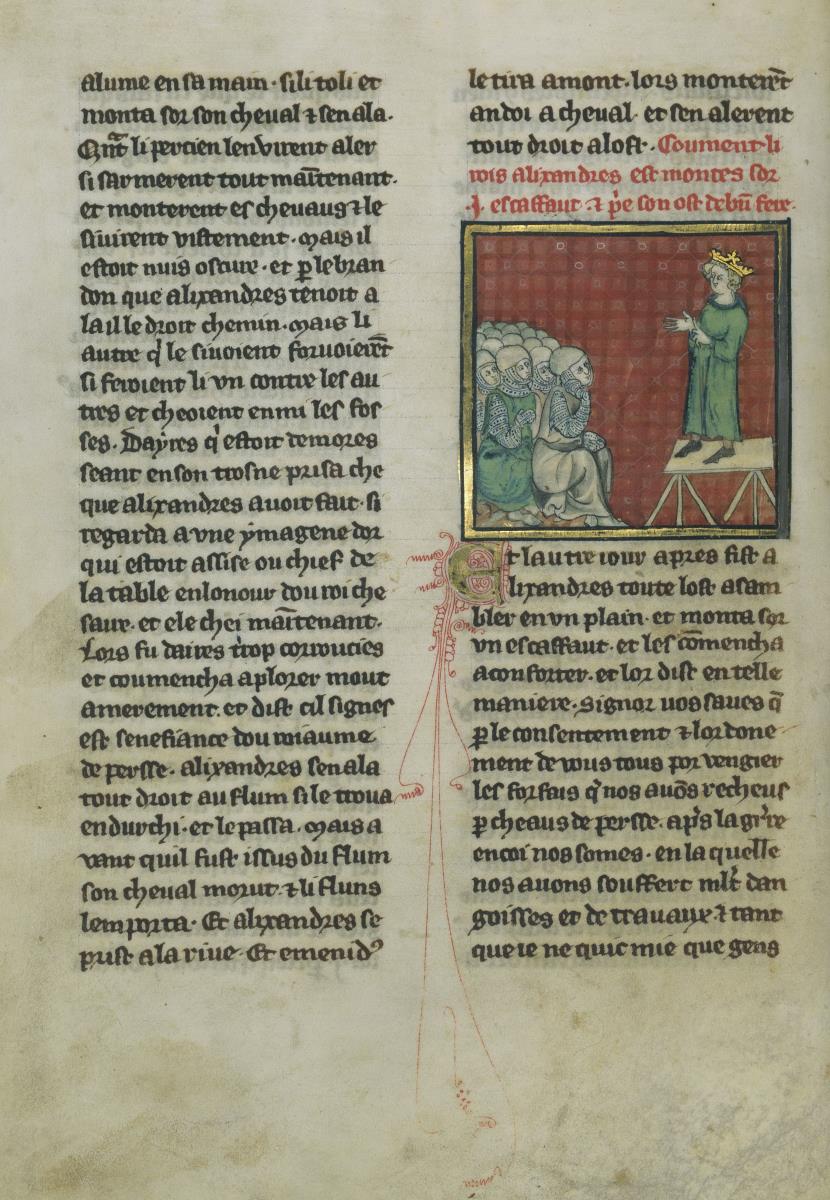 alume en sa main · si li toli et
monta sor son cheval ⁊ sen ala.
Qn̄t li percien len virent aler
si sarmerent tout maītenant.
et monterent es chevaus ⁊ le
sivirent vistement · mais il
estoit nuis oscure · et ꝑ le bran
don que alixandres tenoit a
la il le droit chemin · mais li
autre q̇ le sivoient forvoierēt
si feroient li vn contre les au
tres et cheoient enmi les fos
ses · Dayres q̇ estoit demores
seant en son trosne prist a che
que alixandres avoit fait · si
regarda a vne ymagene dor
qui estoit assise ou chief de
la table en lonour dou roi che
saire · et ele chei maītenant ·
Lors fu daires trop corroucies
et coumencha a plorer mout
amerement · et dist cil signes
est senefiance dou roiaume
de persse · alixandres sen ala
tout droit au flum si le trova
endurchi · et le passa · mais a
vant quil fust issus du flum
son cheval morut · ⁊ li fluns
lemporta · Et alixandres se
prist a la rive · Et emenidꝰ
le tira amont · lors monterēt
andoi a cheval · et sen alerent
tout droit a lost · Coument li
rois alixandres est montes sor
·J· escaffaut · ⁊ pͥe son ost de bn̄ fere ·
Et lautre iour apres fist a
lixandres toute lost asam
bler en vn plain · et monta sor
vn escaffaut · et les cōmencha
a conforter · et lor dist en telle
maniere · Signor vos saves q̄
ꝑ le consentement ⁊ lordone
ment de vous tous por vengier
les forfais q̇ nos avōs recheus
ꝑ cheaus de persse · apͥs la gͥrre
encoi nos somes · en la quelle
nos avons souffert ml̄t dan
goisses et de travaux · ⁊ tant
que ie ne quic mie que gens